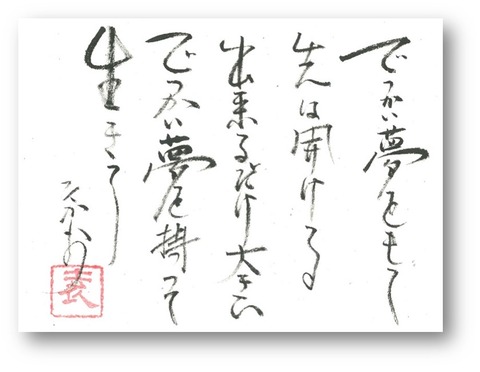 でっかい夢をもて
先は開ける
出来るだけ大きい
でっかい夢を持って
生きて